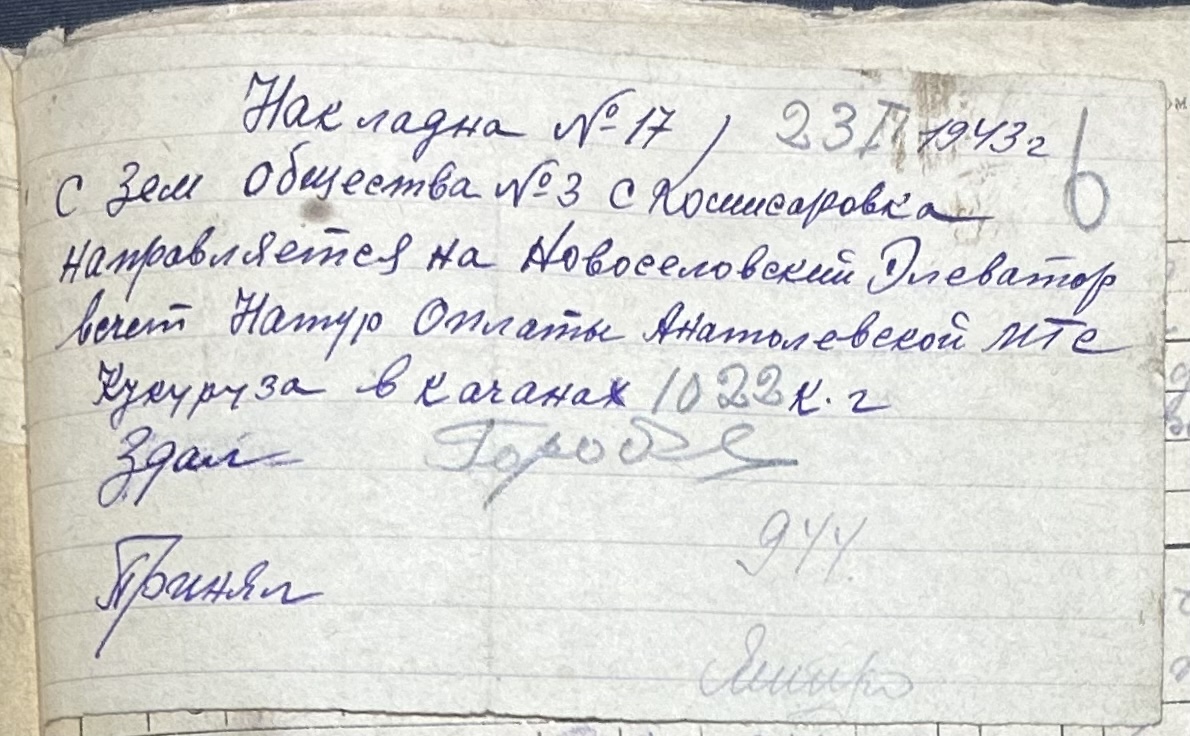 Накладна №17, 23 II 1943г 6
с Зем Общества №3 с Комисаровка
направляется на Новоселовский Элеватор
вечет Натур Оплаты Анатолевской МТС
Кукуруза в качанах 1022 к.г
Здал
944
Принял